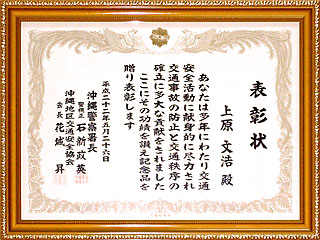 表彰状
上原 文浩 殿
あなたは多年にわたり交通
安全活動に献身的に尽力され
交通事故の防止と交通秩序の
確立に多大な貢献をされました
ここにその功績を讃え記念品を
贈り表彰します
平成二十二年五月二十六日
沖縄警察署長
警視正 石新政英
沖縄地区交通安全協会
会長 花城 昇